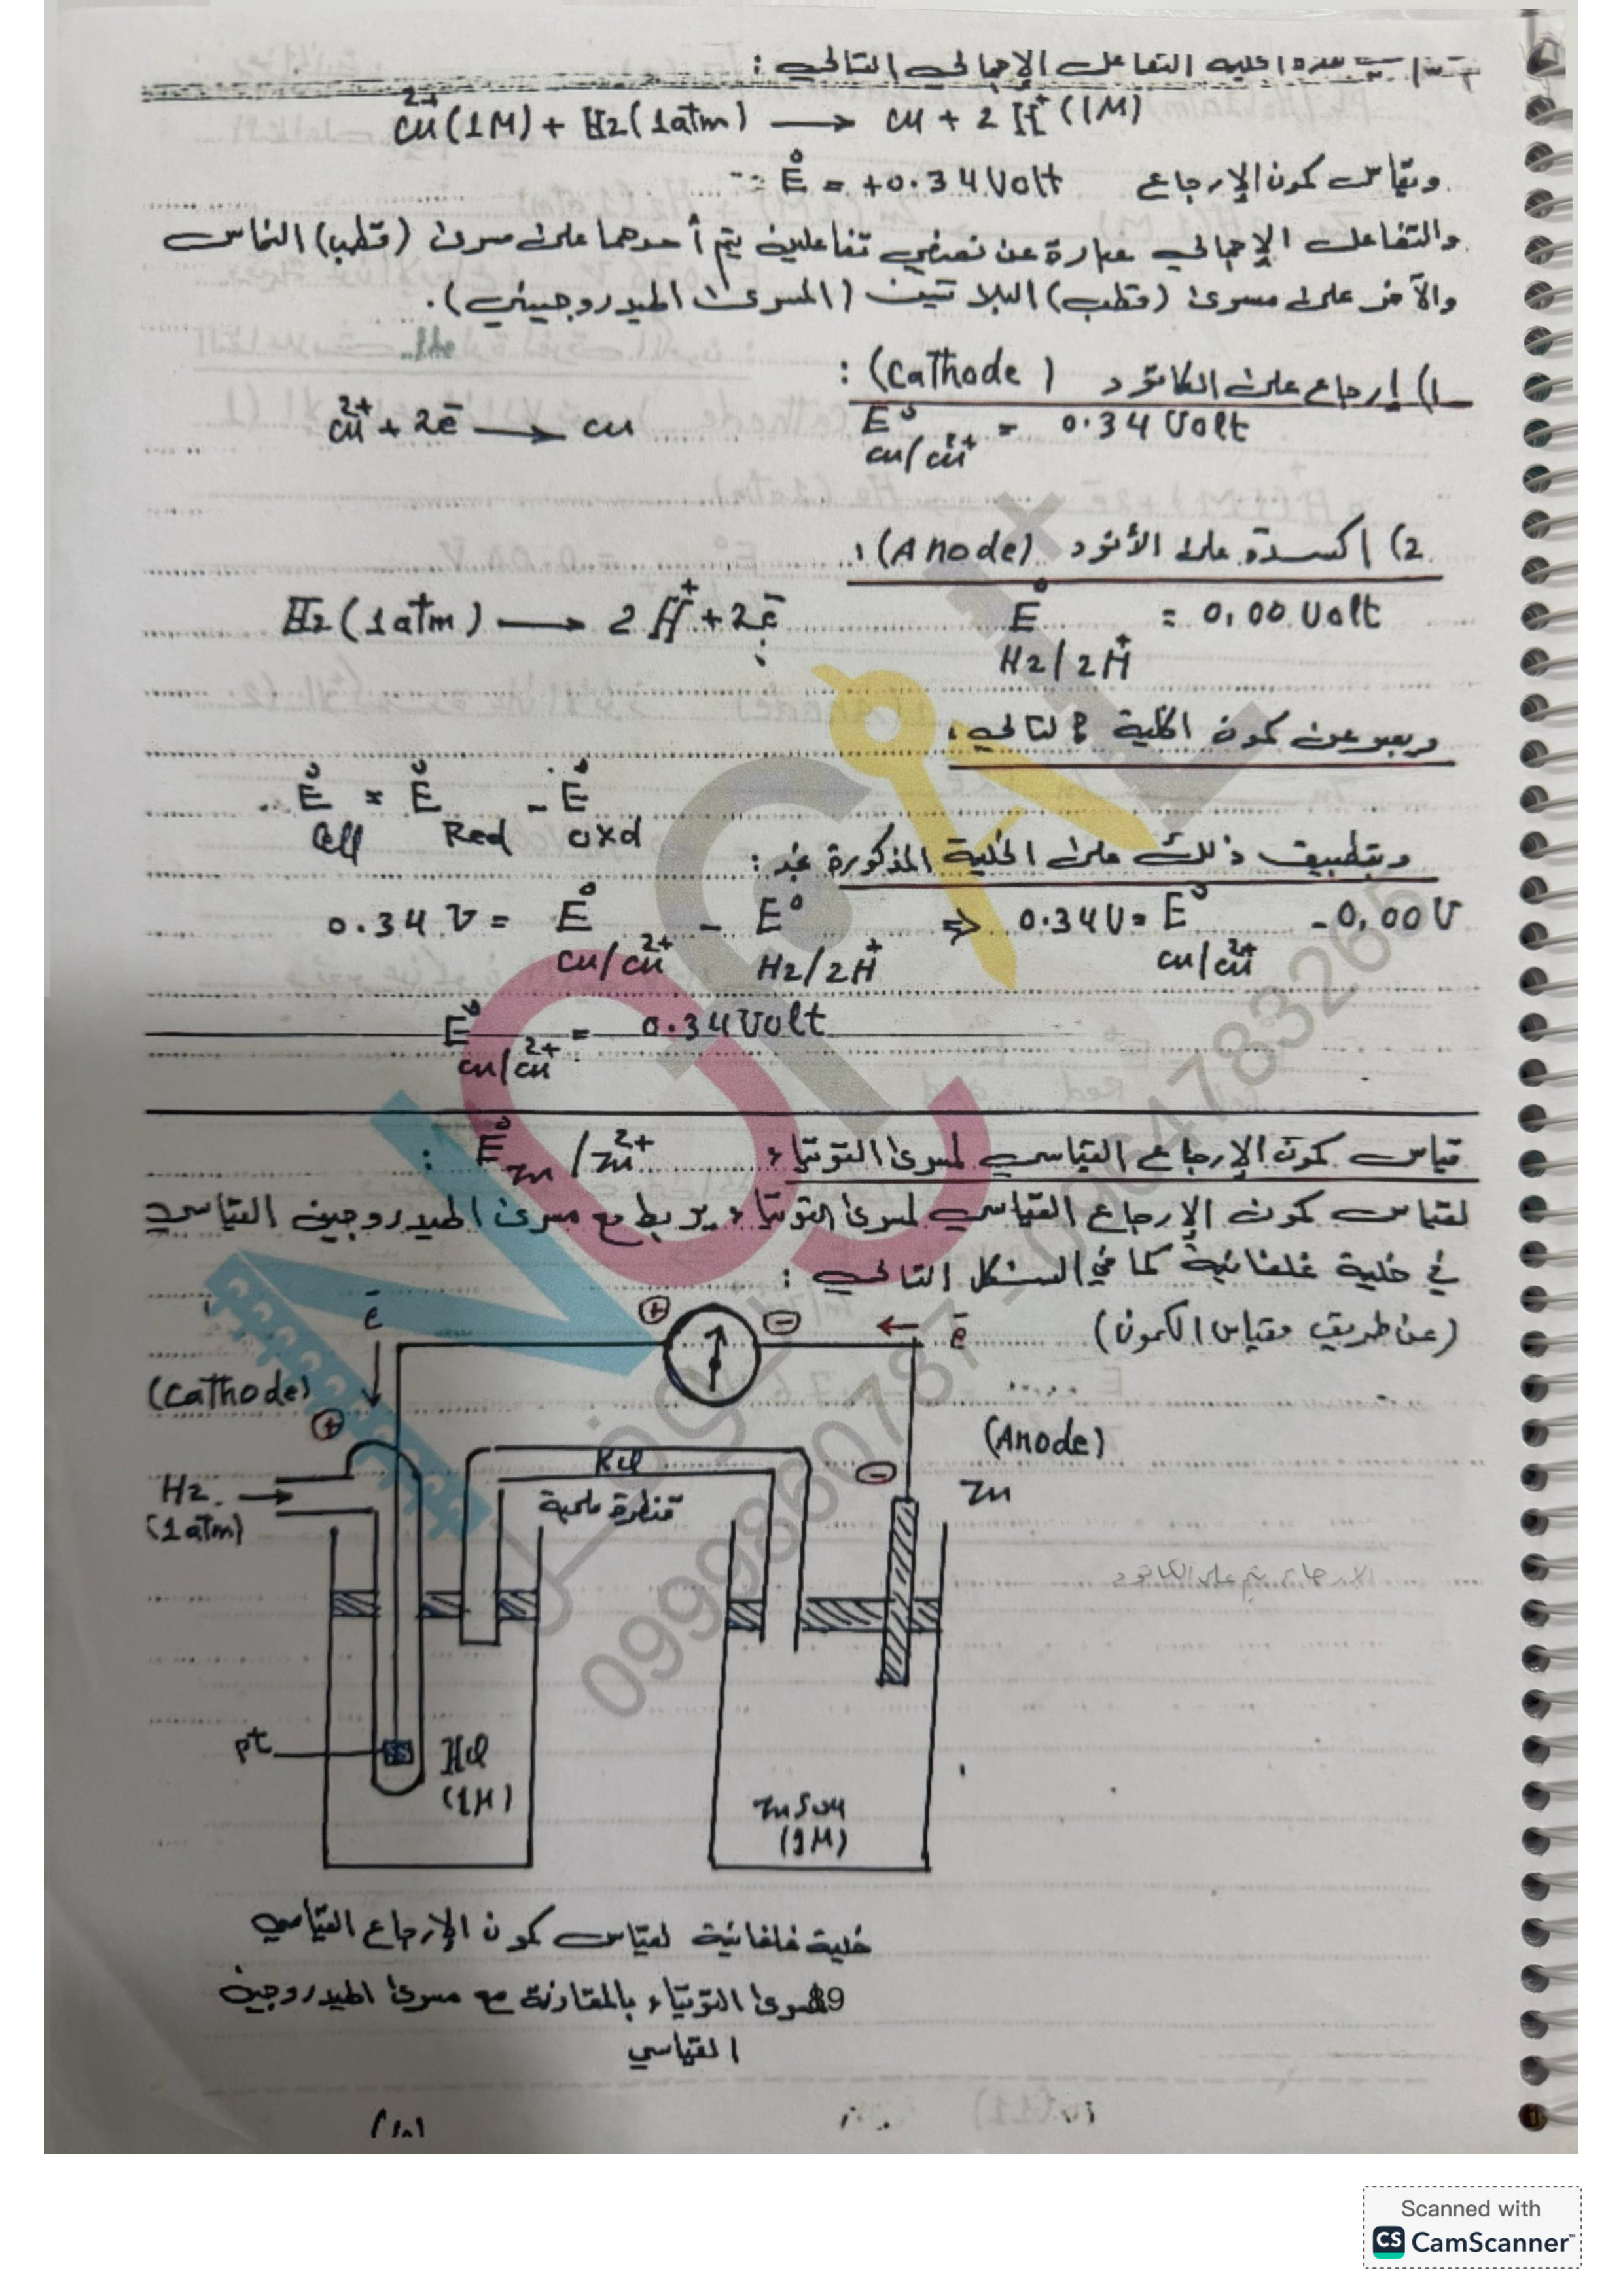 هذه الخلية التفاعل الإجمالي التالي :
Cu²⁺(1M) + H2(1atm) ⟶ Cu + 2H⁺(1M)
ويقاس كمون الإرجاع E° = +0.34 Volt
والتفاعل الإجمالي عبارة عن نصفي تفاعلين يتم أحدهما على مسرى (قطب) النحاس
والآخر على مسرى (قطب) البلاتين (المسرى الهيدروجيني).
1) إرجاع على الكاتود (Cathode) :
Cu²⁺ + 2e⁻ ⟶ Cu E°Cu/Cu²⁺ = 0.34 Volt
2) اكسدة على الأنود (Anode) :
H2(1atm) ⟶ 2H⁺ + 2e⁻ E°H2/2H⁺ = 0,00 Volt
ويعبر عن كمون الخلية كالتالي :
E°Cell = E°Red - E°oxd
وبتطبيق ذلك على الخلية المذكورة نجد :
0.34 V = E°Cu/Cu²⁺ - E°H2/2H⁺ ⇒ 0.34 V = E°Cu/Cu²⁺ - 0,00 V
E°Cu/Cu²⁺ = 0.34 Volt
قياس كمون الإرجاع القياسي لمسرى التوتياء E°Zn/Zn²⁺ :
لقياس كمون الإرجاع القياسي لمسرى التوتياء يربط مع مسرى الهيدروجين القياسي
في خلية غلفانية كما في الشكل التالي :
(عن طريق مقياس الكمون)
e⁻ ⊕ ⊖ ← e⁻
(Cathode) ⊕
(Anode) ⊖
Zn
KCl
قنطرة ملحية
H2 →
(1atm)
الارجاع يتم على الكاتود
pt
HCl
(1M)
ZnSO4
(1M)
خلية غلفانية لقياس كمون الإرجاع القياسي
لمسرى التوتياء بالمقارنة مع مسرى الهيدروجين
القياسي
9
0999860787 - 0964783265
Scanned with
CS CamScanner™